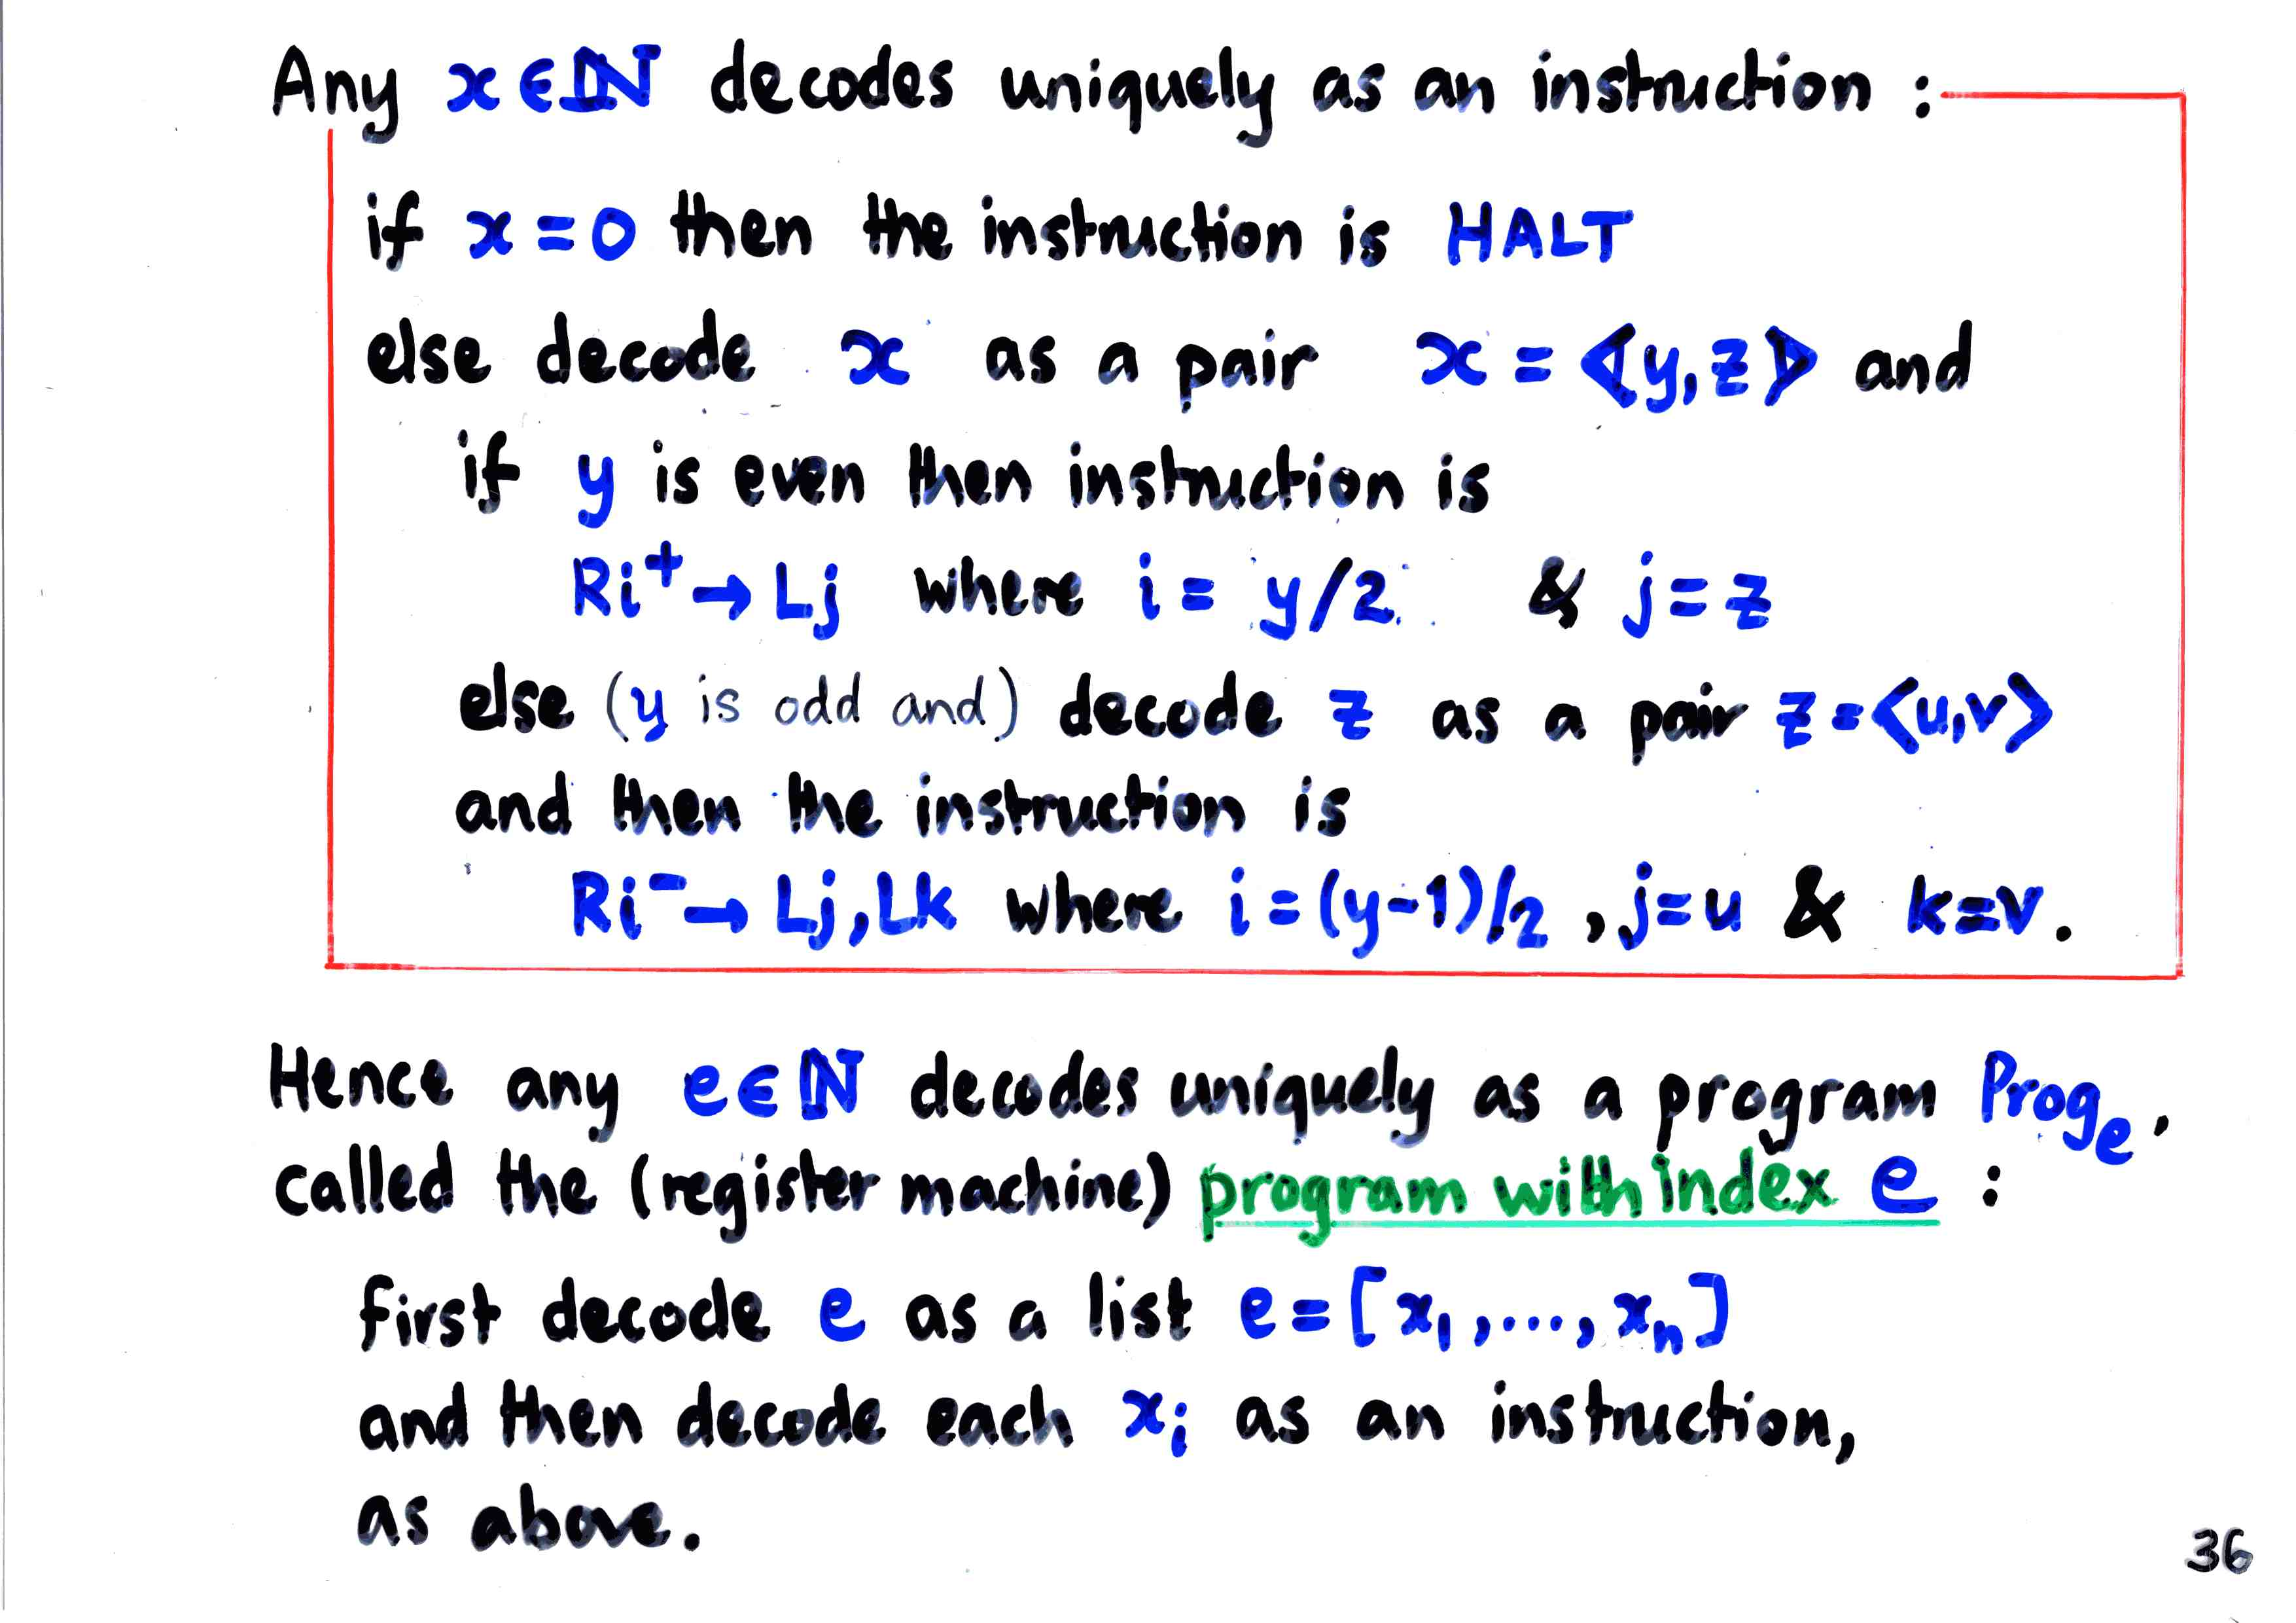 Any x ∈ ℕ decodes uniquely as an instruction :
if x = 0 then the instruction is HALT
else decode x as a pair x = ⟪y, z⟫ and
if y is even then instruction is
Ri⁺ → Lj where i = y/2 & j = z
else (y is odd and) decode z as a pair z = ⟨u,v⟩
and then the instruction is
Ri⁻ → Lj, Lk where i = (y-1)/2 , j = u & k = v.
Hence any e ∈ ℕ decodes uniquely as a program Progₑ,
called the (register machine) program with index e :
first decode e as a list e = [x₁, ..., xₙ]
and then decode each xᵢ as an instruction,
as above.
36